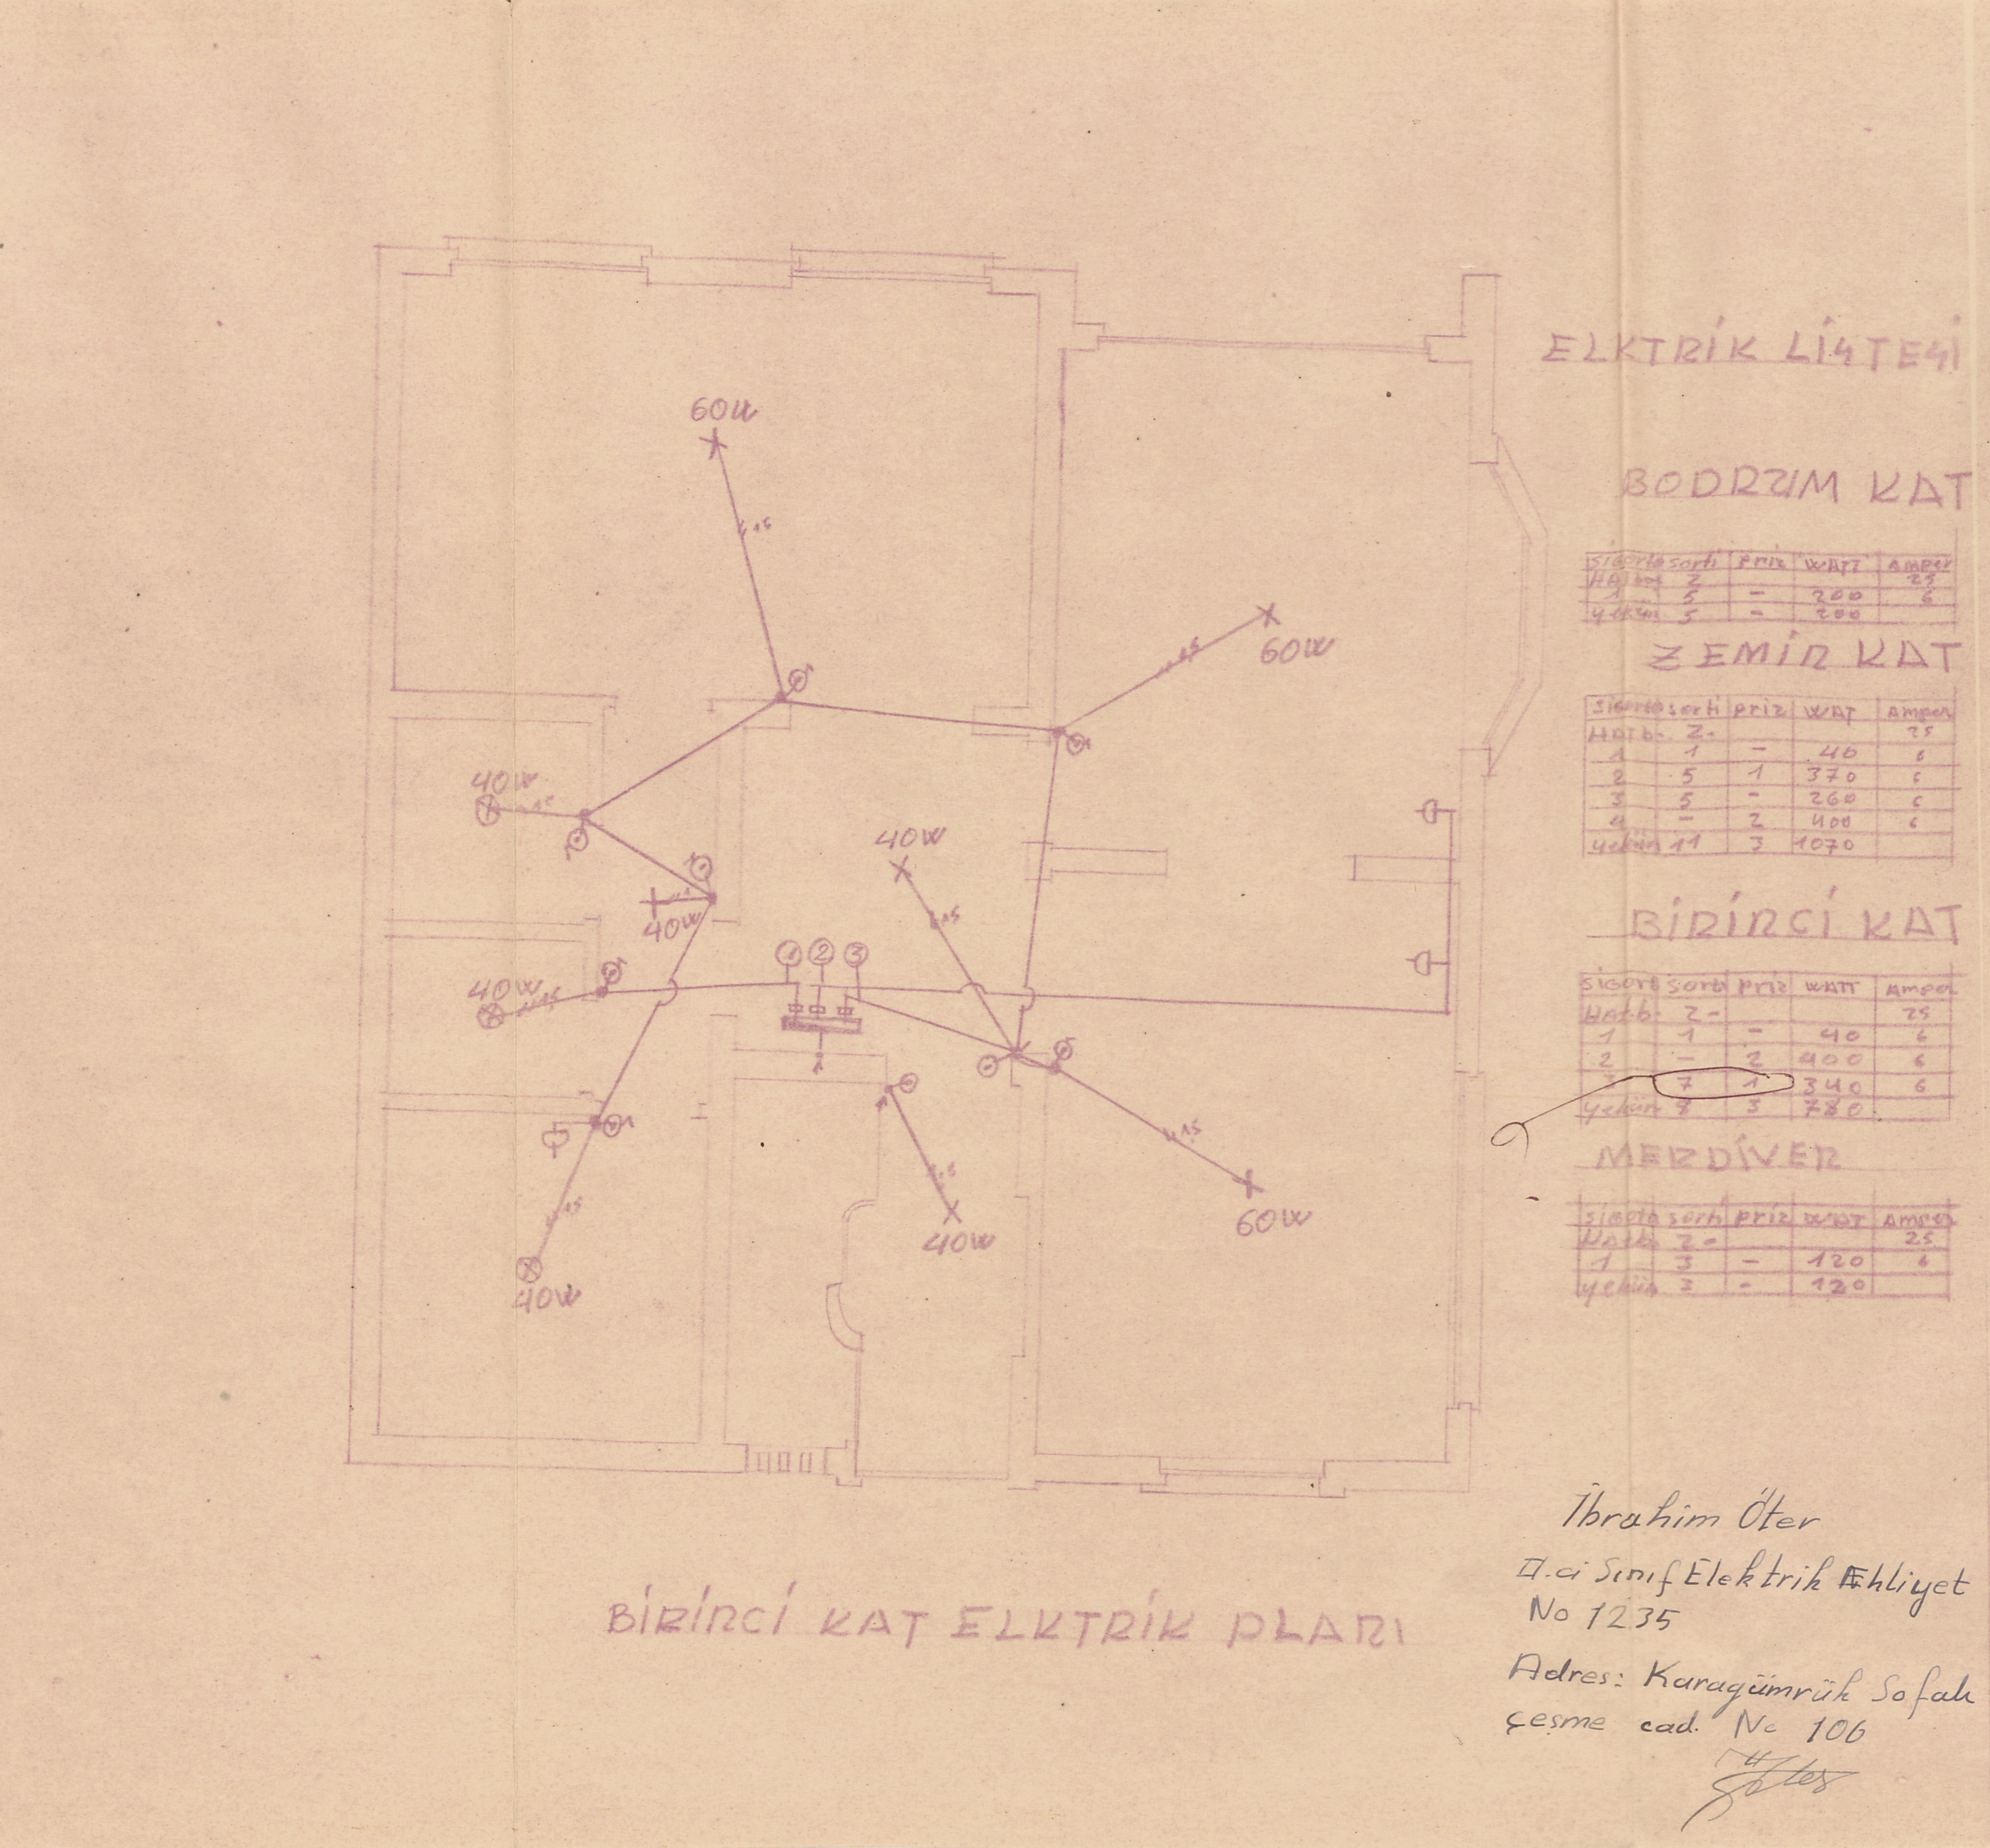 60W
60W
40W
40W
40W
40W
1 2 3
60W
40W
40W
BİRİNCİ KAT ELKTRİK PLANI
ELKTRİK LİSTESİ
BODRUM KAT
sigorta sorti priz WATT Amper
Hatb. 2 25
1 5 - 200 6
yekün 5 - 200
ZEMİN KAT
sigorta sorti priz WAT Amper
HATb- 2- 25
1 1 - 40 6
2 5 1 370 6
3 5 - 260 6
4 - 2 400 6
yekün 11 3 1070
BİRİNCİ KAT
sigort sorti priz WATT Amper
HAtb- 2- 25
1 1 - 40 6
2 - 2 400 6
3 7 1 340 6
yekün 8 3 780
MERDİVEN
sigota sorti priz WAT Amper
HAtb 2- 25
1 3 - 120 6
yekün 3 - 120
İbrahim Öter
II.ci Sınıf Elektrik Ehliyet
No 1235
Adres: Karagümrük Sofalı
çeşme cad. No 106